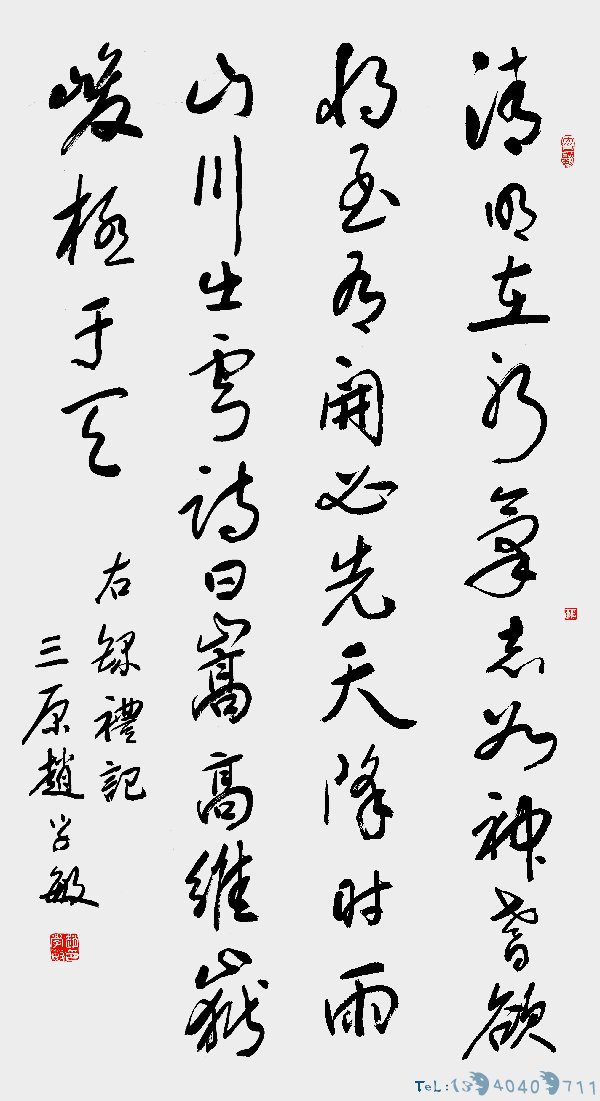 清明在躬氣志如神耆欲
将至有開必先天降时雨
山川出雲詩曰嵩高維嶽
峻極于天
右録禮記
三原趙学敏
TeL:13940409711